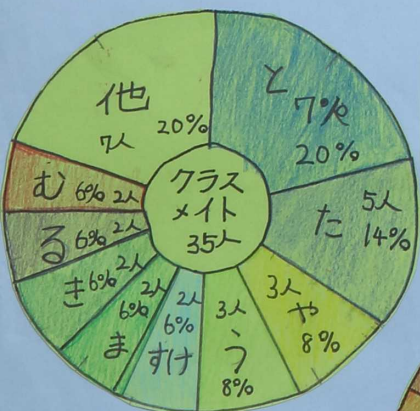 クラス
メイト
35人
と
7%人
20%
た 5人
14%
3人
や
8%
3人
う
8%
2人
6%
すけ
2人
6%
ま
き 6% 2人
る 6% 2人
む 6% 2人
他
7人 20%